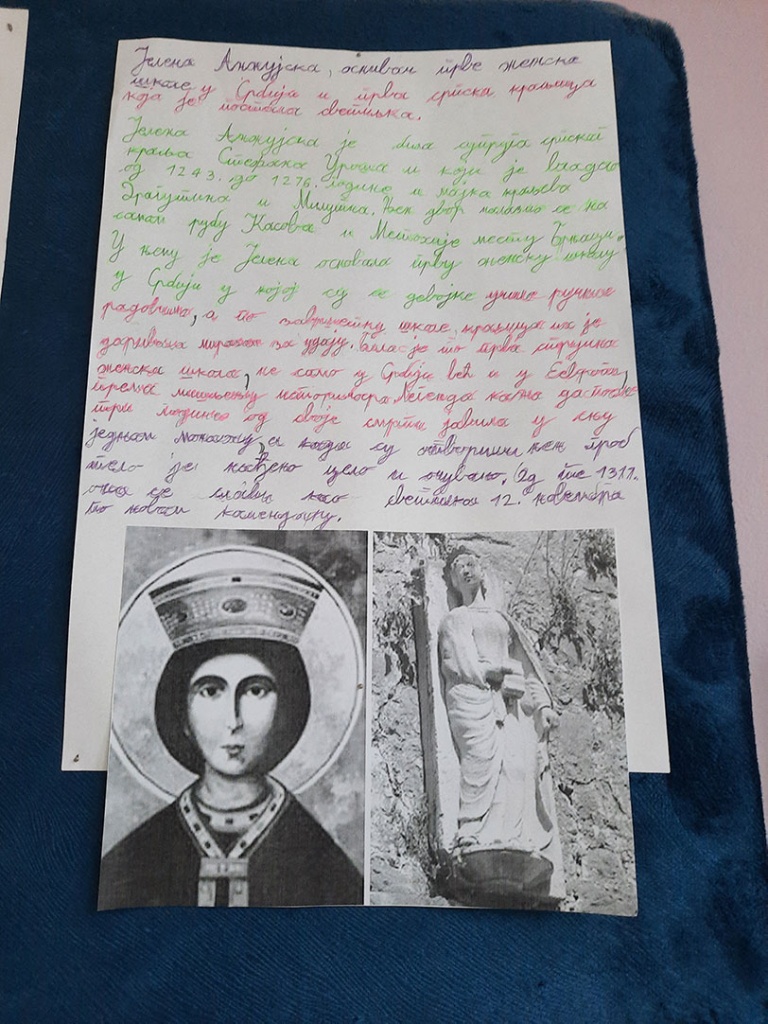 Јелена Анжујска, оснивач прве женске
школе у Србији и прва српска краљица
која је постала светитељка.
Јелена Анжујска је била супруга српског
краља Стефана Уроша и који је владао
од 1243. до 1276. године и мајка краљева
Драгутина и Милутина. Њен двор налазио се на
самом рубу Косова и Метохије месту Брњаци.
У њему је Јелена основала прву женску школу
у Србији у којој су се девојке училе ручним
радовима, а по завршетку школе, краљица их је
даривала миразом за удају. Била је то прва стручна
женска школа, не само у Србији већ и у Европи,
према мишљењу историчара. Легенда каже да после
три године од своје смрти јавила у сну
једном монаху, а када су отворили њен гроб
тело је нађено цело и очувано. Од тис 1317.
она се слави као светитељка 12. новембра
по новом календару.